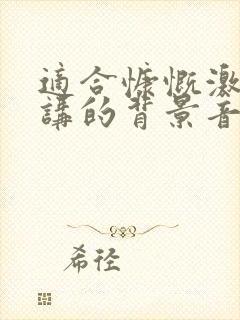 適合慷慨激
講的背景音
希徑